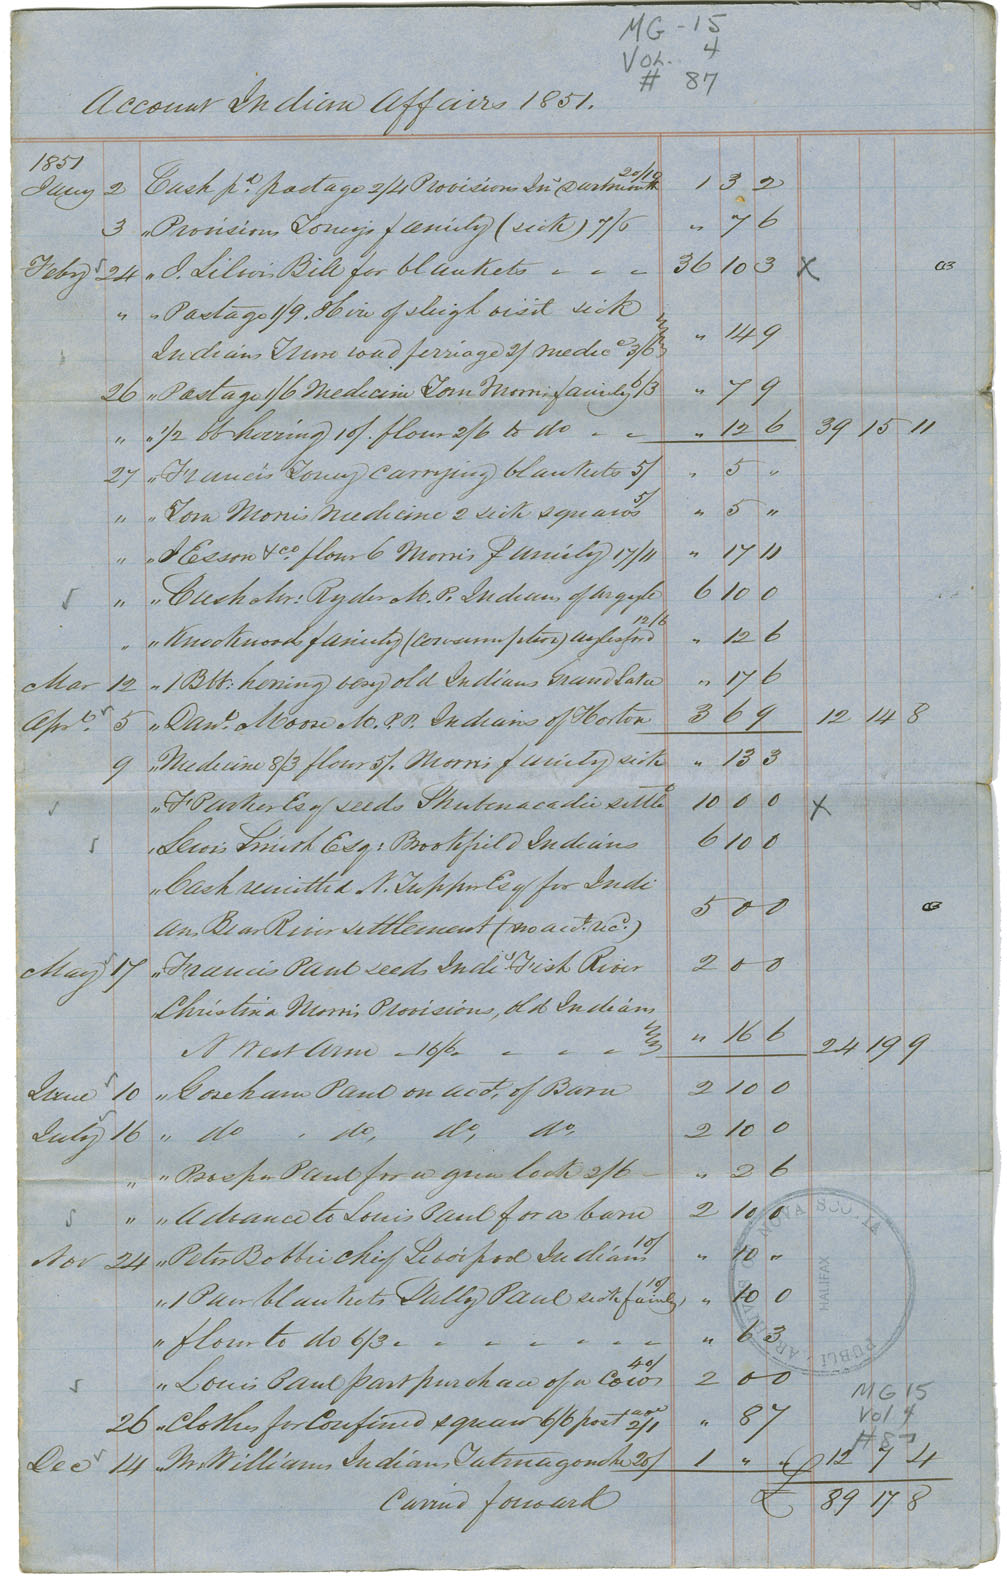 MG-15
Vol. 4
# 87
Account Indian Affairs 1851.
1851
Jany 2 Cash pd. postage 2/4 Provisions 20/10 1 3 2
3 " Provisions Toney's family (sick) 7/6 " 7 6
Feby 24 " J. Bill for blankets - - - 36 10 3 X
" " Postage 1/9. Hire of sleigh visit sick
Indians Truro road ferriage 2/ medice 3/6 " 14 9
26 " Postage 1/6 Medicine Tom Morris family 6/3 " 7 9
" " 1/2 bb herring 10/. flour 2/6 to do - - " 12 6 39 15 11
27 " Francis Toney carrying blankets 5/ " 5 "
" " Tom Morris medicine 2 sick squaws 5/ " 5 "
" " J Esson & Co. flour 6 Morris family 17/11 " 17 11
" " Cash Mr: Ryder M.P. Indians of Argyle 6 10 0
" " Knockwoods family (consumption) Aylesford 12/6 " 12 6
Mar 12 " 1 Bbl: herring very old Indians Grand Lake " 17 6
Apl. 5 " Danl. Moore M.P.P. Indians of Horton 3 6 9 12 14 8
9 " Medicine 8/3 flour 5/. Morris family sick " 13 3
" F Parker Esq seeds Shubenacadie settle 10 0 0 X
" Lewis Smith Esq: Brookfield Indians 6 10 0
" Cash remitted N. Tupper Esq for Indi
ans Bear River settlement (no acct. rec.) 5 0 0
May 17 " Francis Paul seeds Inds. Fish River 2 0 0
" Christina Morris Provisions, old Indians
N West Arm - 16/6 - - - - " 16 6 24 19 9
June 10 " Goreham Paul on acct. of Barn 2 10 0
July 16 " do - do, do, do, 2 10 0
" " Prosper Paul for a gun lock 2/6 - " 2 6
" " Advance to Louis Paul for a barn 2 10 0
Nov 24 " Peter Bobbie chief Liverpool Indians 10/ " 10 "
" 1 Pair blankets Sally Paul sick family 10/ " 10 0
" flour to do 6/3 - - - - - - - " 6 3
" Louis Paul part purchase of a Cow 40/ 2 0 0
26 " Clothes for Confined squaw 6/6 post age 2/1 " 8 7
Dec 14 " Mr Williams Indians Tatmagouche 20/ 1 " " £ 12 7 4
Carried forward £ 89 17 8
PUBLIC ARCHIVES OF NOVA SCOTIA
HALIFAX
MG 15
Vol 4
# 87